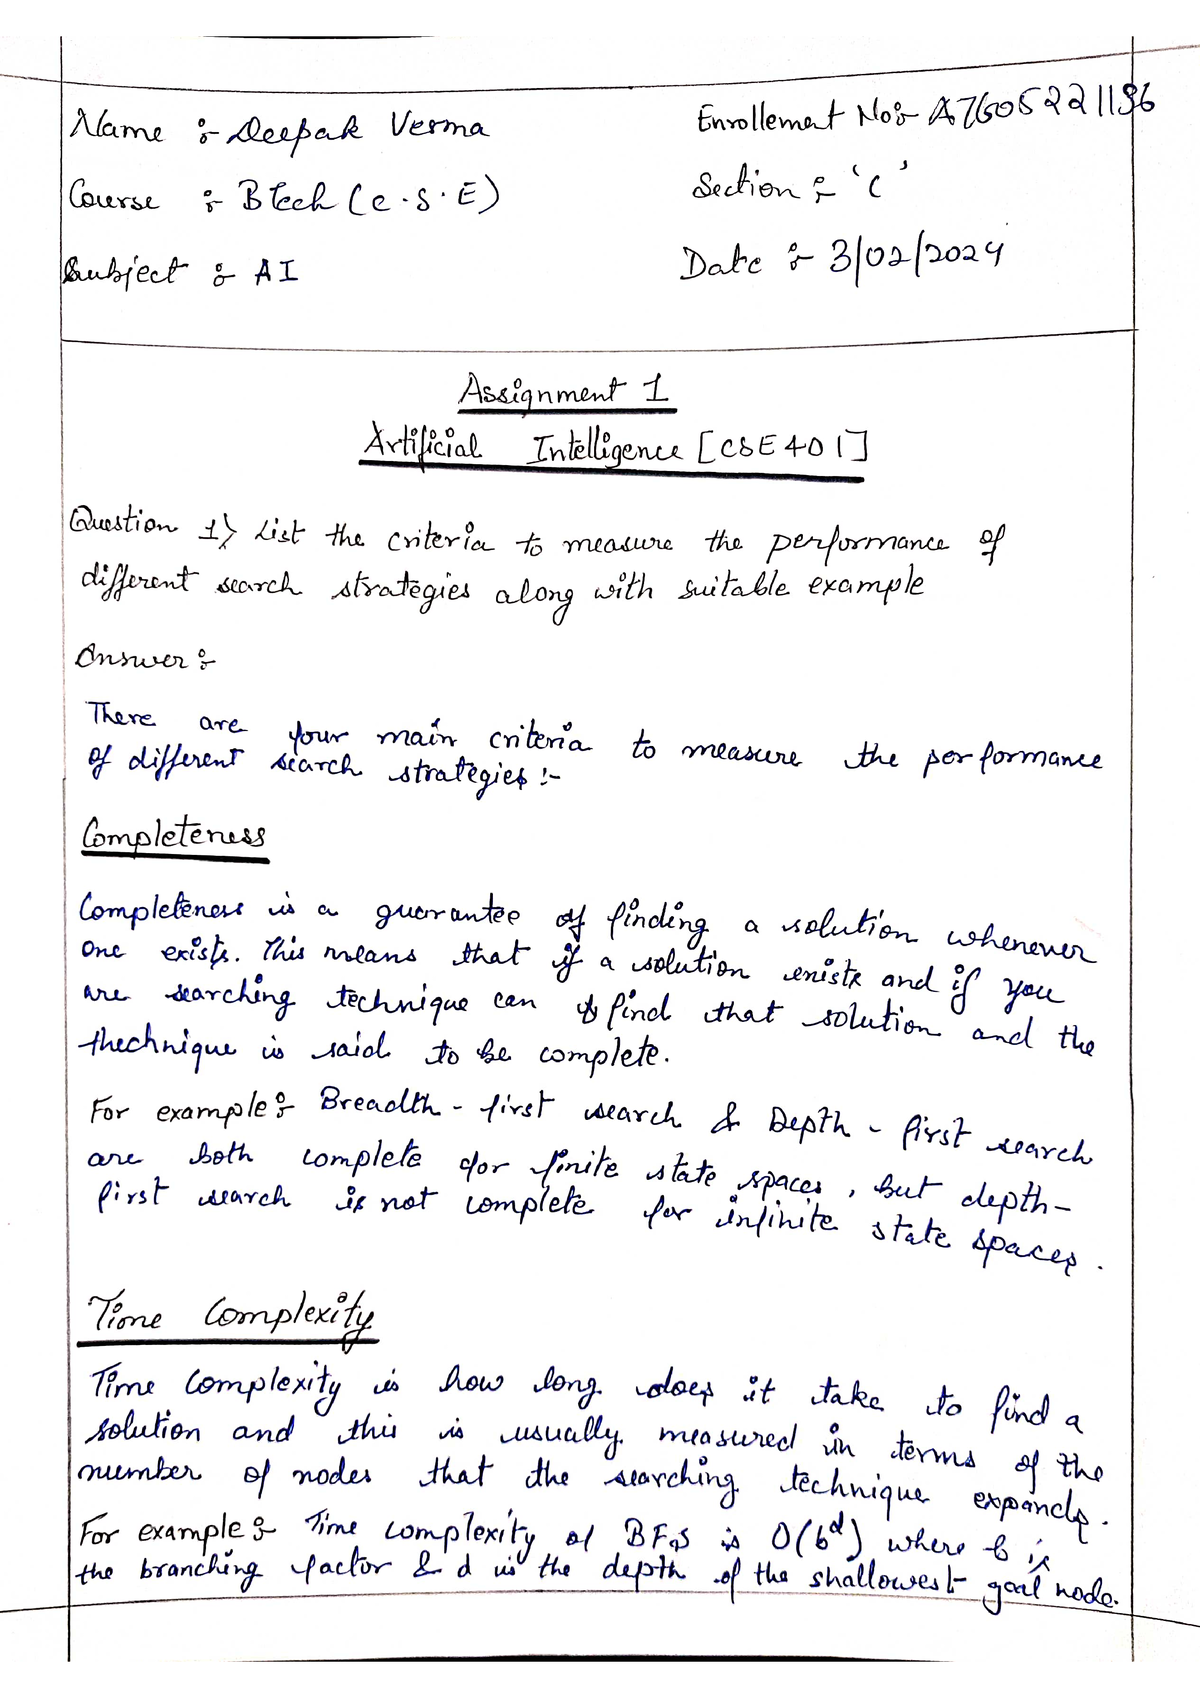 Name :- Deepak Verma
Enrollement No:- A7605221196
Course :- B Tech (C.S.E)
Section :- 'C'
Subject :- AI
Date :- 3/02/2024
Assignment 1
Artificial Intelligence [CSE401]
Question 1) List the criteria to measure the performance of
different search strategies along with suitable example
Answer :-
There are four main criteria to measure the performance
of different search strategies :-
Completeness
Completeness is a guarantee of finding a solution whenever
one exists. This means that if a solution exists and if you
are searching technique can find that solution and the
thechnique is said to be complete.
For example :- Breadth - first search & Depth - first search
are both complete for finite state spaces, but depth-
first search is not complete for infinite state spaces.
Time Complexity
Time Complexity is how long does it take to find a
solution and this is usually measured in terms of the
number of nodes that the searching technique expands.
For example :- Time complexity of BFS is O(b^d) where b is
the branching factor & d is the depth of the shallowest goal node.